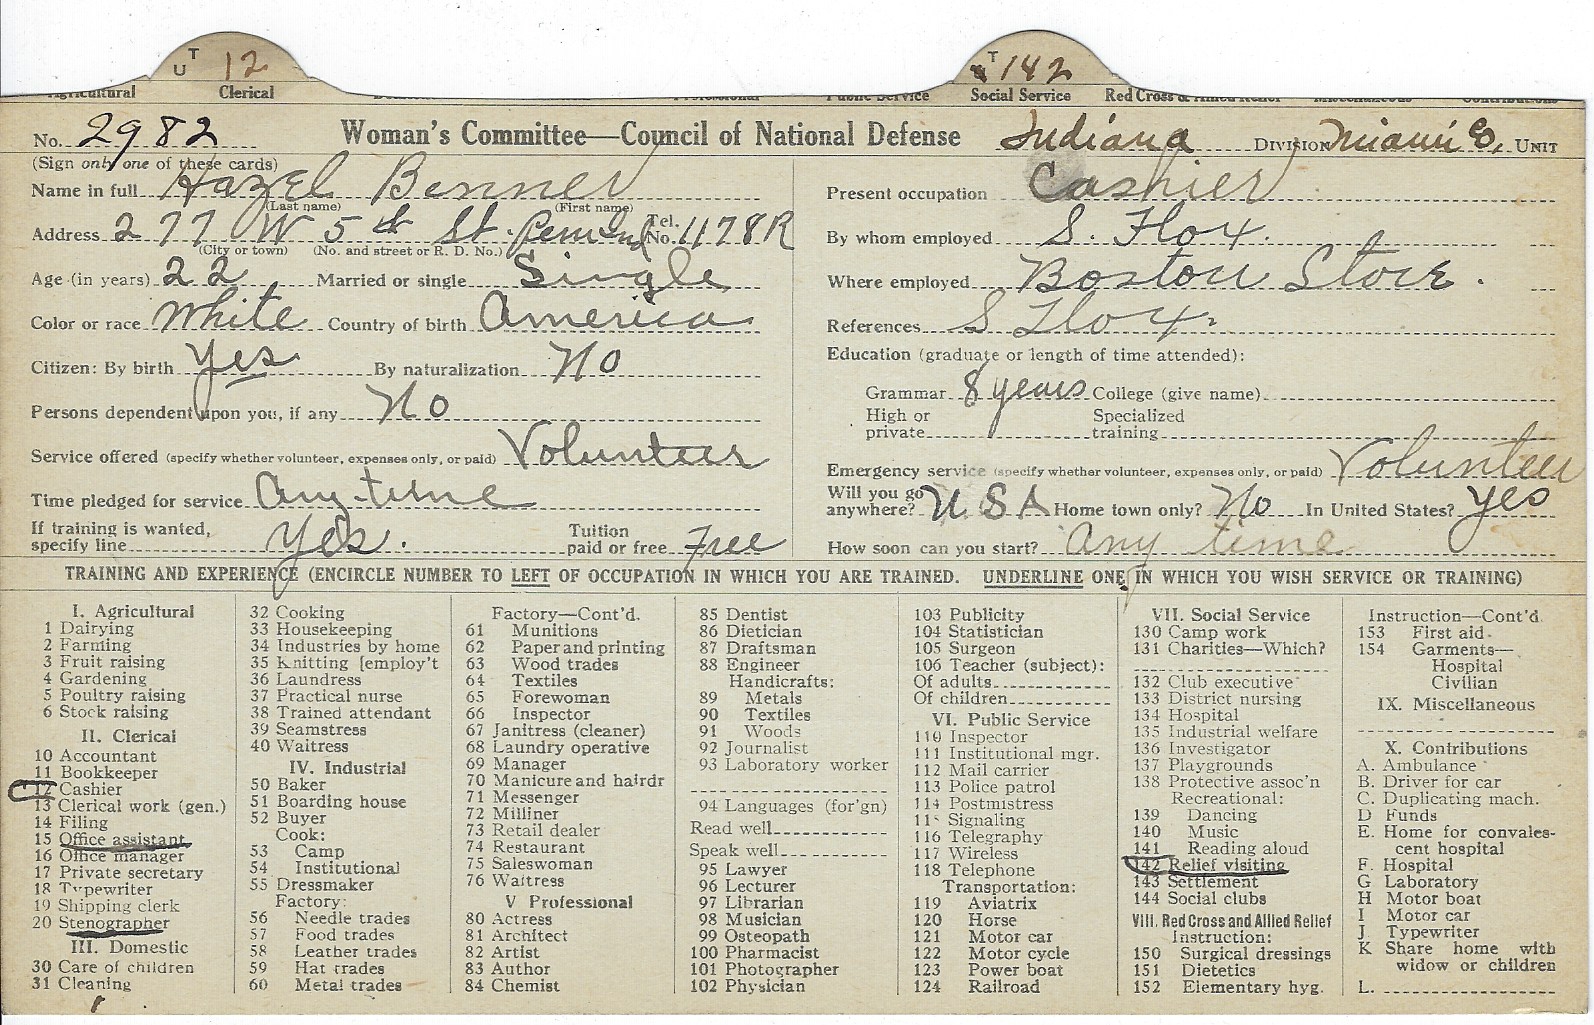 UT 12 T 142
Agricultural Clerical Professional Public Service Social Service Red Cross & Allied Relief Miscellaneous Contributions
No. 2982 Woman's Committee—Council of National Defense Indiana DIVISION Miami Co, UNIT
(Sign only one of these cards)
Name in full Hazel Benner
(Last name) (First name)
Address 277 W 5th St. Peru Ind Tel. No. 1178R
(City or town) (No. and street or R. D. No.)
Age (in years) 22 Married or single Single
Color or race White Country of birth America
Citizen: By birth Yes By naturalization No
Persons dependent upon you, if any No
Service offered (specify whether volunteer, expenses only, or paid) Volunteer
Time pledged for service Any-time
If training is wanted, specify line Yes. Tuition paid or free Free
Present occupation Cashier
By whom employed S. Flox.
Where employed Boston Store.
References S Flox.
Education (graduate or length of time attended):
Grammar 8 years College (give name)
High or private Specialized training
Emergency service (specify whether volunteer, expenses only, or paid) Volunteer
Will you go anywhere? USA Home town only? No In United States? Yes
How soon can you start? Any time
TRAINING AND EXPERIENCE (ENCIRCLE NUMBER TO LEFT OF OCCUPATION IN WHICH YOU ARE TRAINED. UNDERLINE ONE IN WHICH YOU WISH SERVICE OR TRAINING)
I. Agricultural
1 Dairying
2 Farming
3 Fruit raising
4 Gardening
5 Poultry raising
6 Stock raising
II. Clerical
10 Accountant
11 Bookkeeper
12 Cashier
13 Clerical work (gen.)
14 Filing
15 Office assistant
16 Office manager
17 Private secretary
18 Typewriter
19 Shipping clerk
20 Stenographer
III. Domestic
30 Care of children
31 Cleaning
32 Cooking
33 Housekeeping
34 Industries by home
35 Knitting [employ't
36 Laundress
37 Practical nurse
38 Trained attendant
39 Seamstress
40 Waitress
IV. Industrial
50 Baker
51 Boarding house
52 Buyer
Cook:
53 Camp
54 Institutional
55 Dressmaker
Factory:
56 Needle trades
57 Food trades
58 Leather trades
59 Hat trades
60 Metal trades
Factory—Cont'd.
61 Munitions
62 Paper and printing
63 Wood trades
64 Textiles
65 Forewoman
66 Inspector
67 Janitress (cleaner)
68 Laundry operative
69 Manager
70 Manicure and hairdr
71 Messenger
72 Milliner
73 Retail dealer
74 Restaurant
75 Saleswoman
76 Waitress
V Professional
80 Actress
81 Architect
82 Artist
83 Author
84 Chemist
85 Dentist
86 Dietician
87 Draftsman
88 Engineer
Handicrafts:
89 Metals
90 Textiles
91 Woods
92 Journalist
93 Laboratory worker
94 Languages (for'gn)
Read well
Speak well
95 Lawyer
96 Lecturer
97 Librarian
98 Musician
99 Osteopath
100 Pharmacist
101 Photographer
102 Physician
103 Publicity
104 Statistician
105 Surgeon
106 Teacher (subject):
Of adults
Of children
VI. Public Service
110 Inspector
111 Institutional mgr.
112 Mail carrier
113 Police patrol
114 Postmistress
115 Signaling
116 Telegraphy
117 Wireless
118 Telephone
Transportation:
119 Aviatrix
120 Horse
121 Motor car
122 Motor cycle
123 Power boat
124 Railroad
VII. Social Service
130 Camp work
131 Charities—Which?
132 Club executive
133 District nursing
134 Hospital
135 Industrial welfare
136 Investigator
137 Playgrounds
138 Protective assoc'n
Recreational:
139 Dancing
140 Music
141 Reading aloud
142 Relief visiting
143 Settlement
144 Social clubs
VIII. Red Cross and Allied Relief
Instruction:
150 Surgical dressings
151 Dietetics
152 Elementary hyg.
Instruction—Cont'd.
153 First aid
154 Garments—
Hospital
Civilian
IX. Miscellaneous
X. Contributions
A. Ambulance
B. Driver for car
C. Duplicating mach.
D Funds
E. Home for convalescent hospital
F. Hospital
G Laboratory
H Motor boat
I Motor car
J. Typewriter
K Share home with widow or children
L.